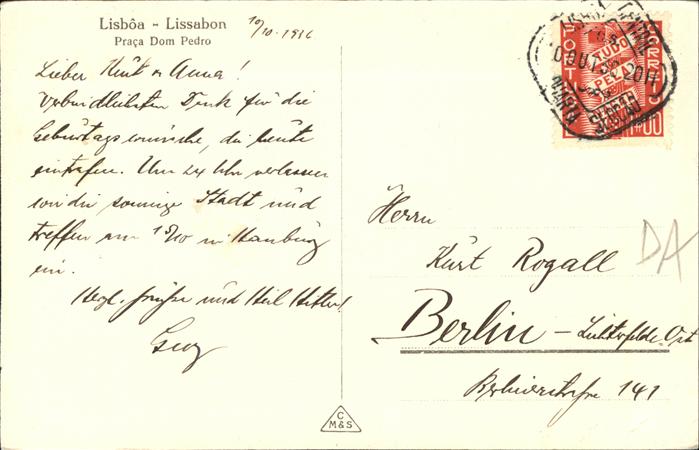 Lisbôa - Lissabon
Praça Dom Pedro
10/10. 1936
Lieber Kurt u Anna!
Verbindlichsten Dank für die
Geburtagswünsche, die heute
eintrafen. Um 24 Uhr verlassen
wir die sonnige Stadt und
treffen am 15/10 in Hamburg
ein.
Herzl. Grüße und Heil Hitler!
CORREIO
PORTUGAL
TUDO
PELA
NAÇÃO
1$00
LISBOA CENTRAL
10 OUT 36 20H
SECÇÃO
Herrn
Kurt Rogall
Berlin - Lichterfelde. Ost
Berlinerstraße 141
DA
C
M&S